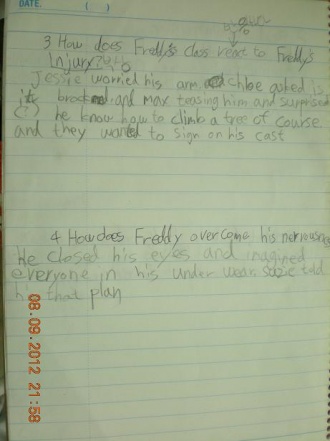 DATE. ( )
3 How does Freddy's class react to Freddy's
Injury?
Jessie worried his arm chloe asked is
it and max teasing him and surprised
(?) he know how to climb a tree of course
and they wanted to sign on his cast
4 How does Freddy overcome his nervousness
He closed his eyes and imagined
everyone in his under wear told
him that plan
08.09.2012 21:58